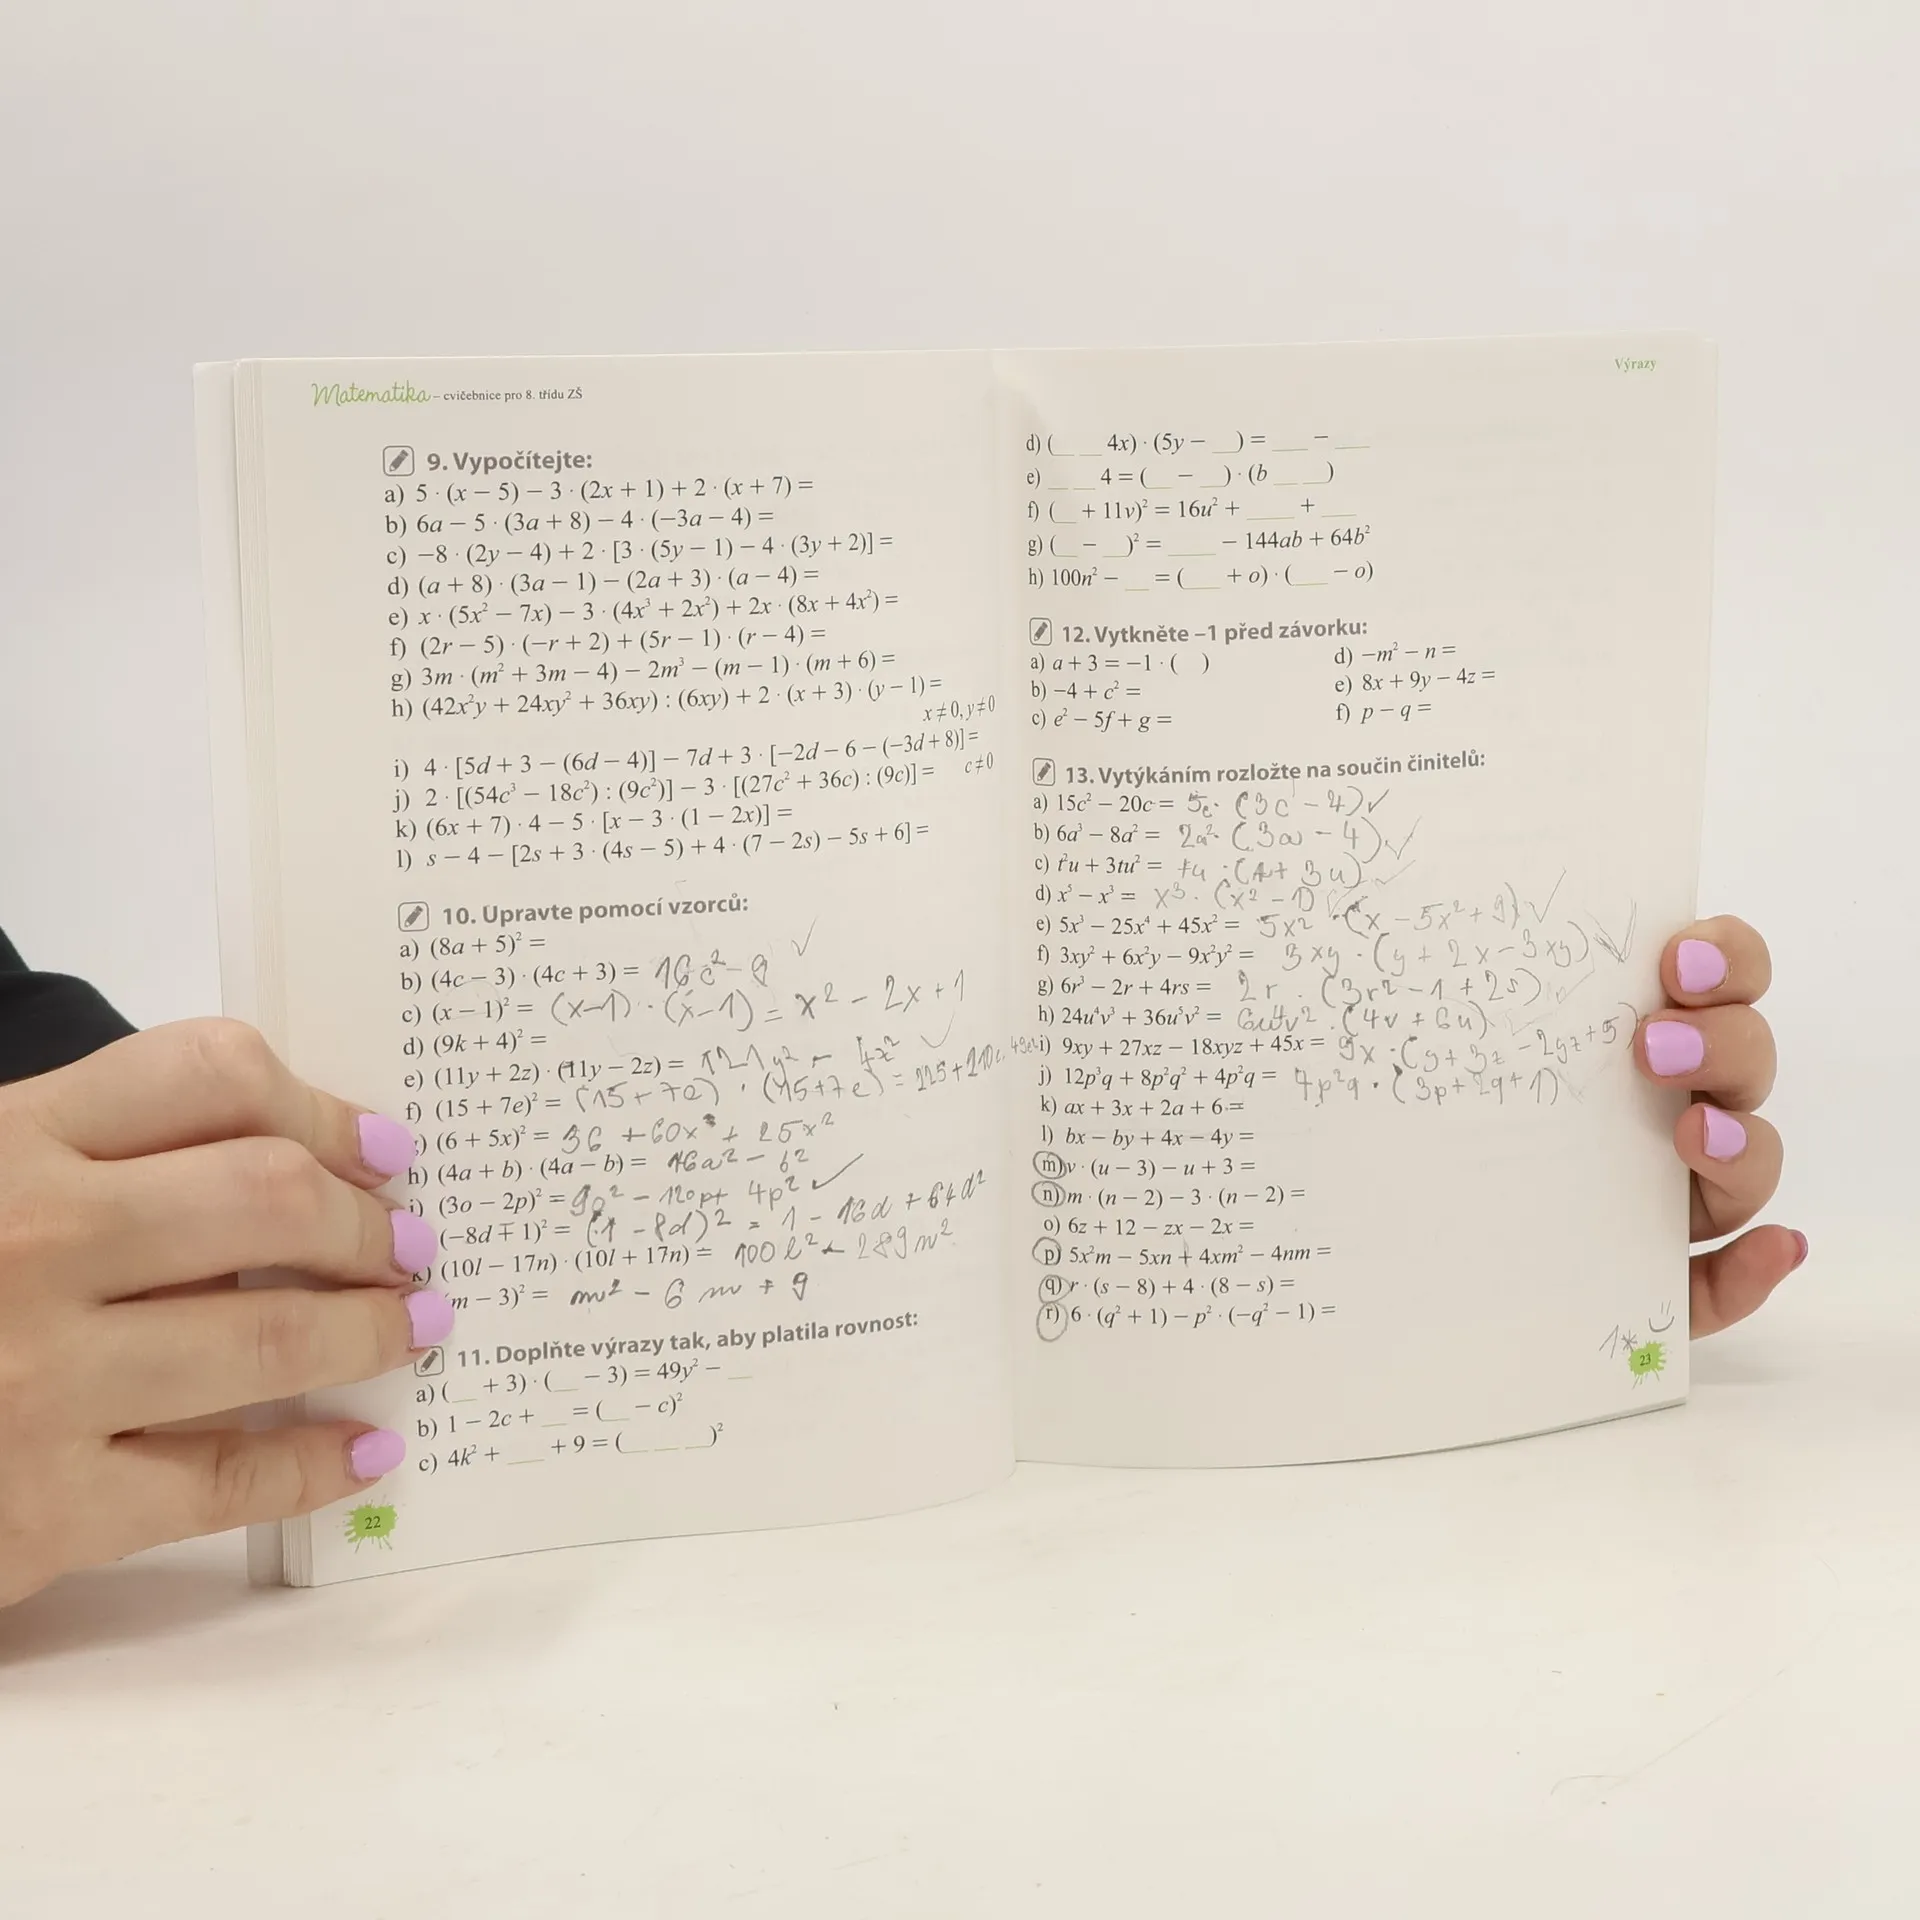 Matematika – cvičebnice pro 8. třídu ZŠ
9. Vypočítejte:
a) 5 · (x − 5) − 3 · (2x + 1) + 2 · (x + 7) =
b) 6a − 5 · (3a + 8) − 4 · (−3a − 4) =
c) −8 · (2y − 4) + 2 · [3 · (5y − 1) − 4 · (3y + 2)] =
d) (a + 8) · (3a − 1) − (2a + 3) · (a − 4) =
e) x · (5x² − 7x) − 3 · (4x³ + 2x²) + 2x · (8x + 4x²) =
f) (2r − 5) · (−r + 2) + (5r − 1) · (r − 4) =
g) 3m · (m² + 3m − 4) − 2m³ − (m − 1) · (m + 6) =
h) (42x²y + 24xy² + 36xy) : (6xy) + 2 · (x + 3) · (y − 1) =
x ≠ 0, y ≠ 0
i) 4 · [5d + 3 − (6d − 4)] − 7d + 3 · [−2d − 6 − (−3d + 8)] =
j) 2 · [(54c³ − 18c²) : (9c²)] − 3 · [(27c² + 36c) : (9c)] = c ≠ 0
k) (6x + 7) · 4 − 5 · [x − 3 · (1 − 2x)] =
l) s − 4 − [2s + 3 · (4s − 5) + 4 · (7 − 2s) − 5s + 6] =
10. Upravte pomocí vzorců:
a) (8a + 5)² =
b) (4c − 3) · (4c + 3) = 16c² − 9
c) (x − 1)² = (x−1) · (x−1) = x² − 2x + 1
d) (9k + 4)² =
e) (11y + 2z) · (11y − 2z) = 121y² − 4z²
f) (15 + 7e)² = (15 + 7e) · (15+7e) = 225 + 210e + 49e²
) (6 + 5x)² = 36 + 60x + 25x²
h) (4a + b) · (4a − b) = 16a² − b²
i) (3o − 2p)² = 9o² − 12op + 4p²
(−8d + 1)² = (1 − 8d)² = 1 − 16d + 64d²
k) (10l − 17n) · (10l + 17n) = 100l² − 289n²
m − 3)² = m² − 6m + 9
11. Doplňte výrazy tak, aby platila rovnost:
a) (__ + 3) · (__ − 3) = 49y² − __
b) 1 − 2c + __ = (__ − c)²
c) 4k² + ___ + 9 = (__ __ __)²
22
Výrazy
d) (__ __ 4x) · (5y − __) = ___ − ___
e) __ __ 4 = (__ − __) · (b __ __)
f) (__ + 11v)² = 16u² + ___ + ___
g) (__ − __)² = ___ − 144ab + 64b²
h) 100n² − __ = (__ + o) · (__ − o)
12. Vytkněte –1 před závorku:
a) a + 3 = −1 · ( ) d) −m² − n =
b) −4 + c² = e) 8x + 9y − 4z =
c) e² − 5f + g = f) p − q =
13. Vytýkáním rozložte na součin činitelů:
a) 15c² − 20c = 5c · (3c − 4)
b) 6a³ − 8a² = 2a² · (3a − 4)
c) t²u + 3tu² = tu · (t + 3u)
d) x⁵ − x³ = x³ · (x² − 1)
e) 5x³ − 25x⁴ + 45x² = 5x² · (x − 5x² + 9)
f) 3xy² + 6x²y − 9x²y² = 3xy · (y + 2x − 3xy)
g) 6r³ − 2r + 4rs = 2r · (3r² − 1 + 2s)
h) 24u⁴v³ + 36u⁵v² = 6u⁴v² · (4v + 6u)
i) 9xy + 27xz − 18xyz + 45x = 9x · (y + 3z − 2yz + 5)
j) 12p³q + 8p²q² + 4p²q = 4p²q · (3p + 2q + 1)
k) ax + 3x + 2a + 6 =
l) bx − by + 4x − 4y =
m) v · (u − 3) − u + 3 =
n) m · (n − 2) − 3 · (n − 2) =
o) 6z + 12 − zx − 2x =
p) 5x²m − 5xn + 4xm² − 4nm =
q) r · (s − 8) + 4 · (8 − s) =
r) 6 · (q² + 1) − p² · (−q² − 1) =
1*
23